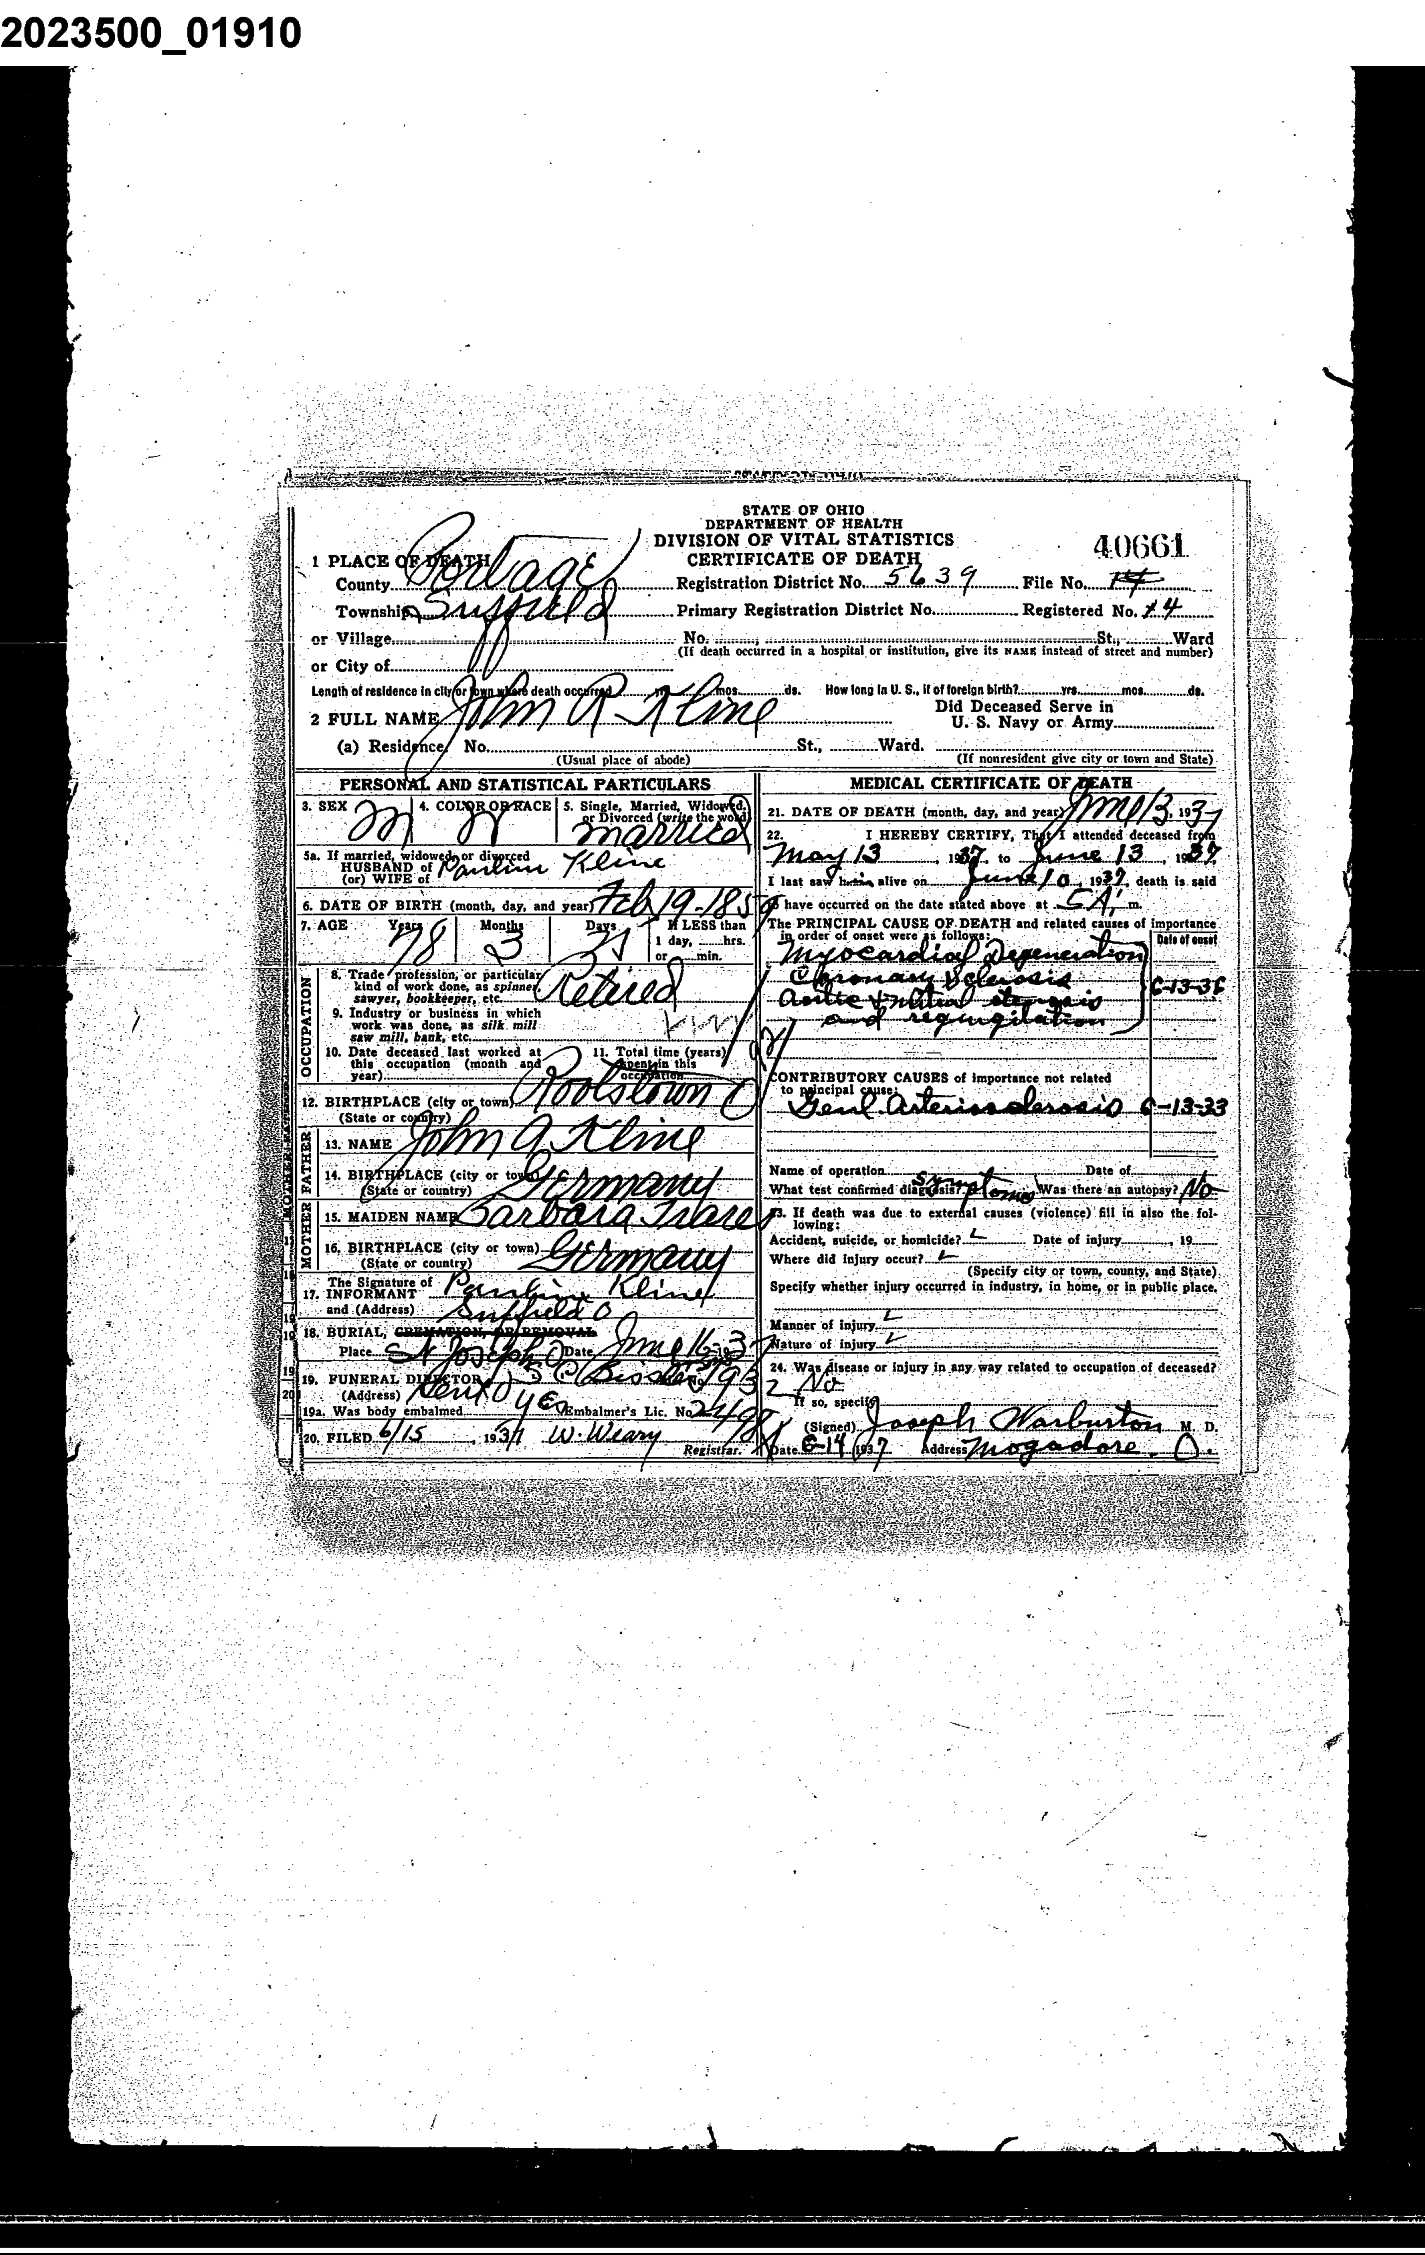 2023500_01910
STATE OF OHIO
DEPARTMENT OF HEALTH
DIVISION OF VITAL STATISTICS
CERTIFICATE OF DEATH
40661
1 PLACE OF DEATH
County Portage Registration District No. 5639 File No. 14
Township Suffield Primary Registration District No. Registered No. 14
or Village No. St., Ward
(If death occurred in a hospital or institution, give its NAME instead of street and number)
or City of
Length of residence in city or town where death occurred yrs. mos. ds. How long in U. S., if of foreign birth? yrs. mos. ds.
2 FULL NAME John R Kline Did Deceased Serve in U. S. Navy or Army
(a) Residence. No. St., Ward.
(Usual place of abode) (If nonresident give city or town and State)
PERSONAL AND STATISTICAL PARTICULARS
3. SEX M 4. COLOR OR RACE W 5. Single, Married, Widowed, or Divorced (write the word) Married
5a. If married, widowed, or divorced
HUSBAND of Pauline Kline
(or) WIFE of
6. DATE OF BIRTH (month, day, and year) Feb 19-1859
7. AGE Years 78 Months 3 Days If LESS than
1 day, hrs.
or min.
OCCUPATION
8. Trade, profession, or particular
kind of work done, as spinner,
sawyer, bookkeeper, etc. Retired
9. Industry or business in which
work was done, as silk mill
saw mill, bank, etc.
10. Date deceased last worked at
this occupation (month and
year)
11. Total time (years)
spent in this
occupation
12. BIRTHPLACE (city or town) Rootstown O
(State or country)
FATHER
13. NAME John A Kline
14. BIRTHPLACE (city or town) Germany
(State or country)
MOTHER
15. MAIDEN NAME Barbara
16. BIRTHPLACE (city or town) Germany
(State or country)
The Signature of
17. INFORMANT Pauline Kline
and (Address) Suffield O
18. BURIAL, CREMATION, OR REMOVAL
Place St Joseph O Date June 16-1937
19. FUNERAL DIRECTOR S C Bissler
(Address) Kent O
19a. Was body embalmed yes Embalmer's Lic. No. 2498
20. FILED 6/15, 1937 W. Weary
Registrar.
MEDICAL CERTIFICATE OF DEATH
21. DATE OF DEATH (month, day, and year) June 13, 1937
22. I HEREBY CERTIFY, That I attended deceased from
May 13, 1937, to June 13, 1937
I last saw him alive on June 10, 1937, death is said
to have occurred on the date stated above at 5 A. m.
The PRINCIPAL CAUSE OF DEATH and related causes of importance
in order of onset were as follows: Date of onset
Myocardial Degeneration
Coronary Sclerosis 6-13-36
Aortic & mitral stenosis
and regurgitation
CONTRIBUTORY CAUSES of importance not related
to principal cause:
Genl. Arteriosclerosis 6-13-33
Name of operation Date of
What test confirmed diagnosis? Symptoms Was there an autopsy? No
23. If death was due to external causes (violence) fill in also the fol-
lowing:
Accident, suicide, or homicide? Date of injury , 19
Where did injury occur?
(Specify city or town, county, and State)
Specify whether injury occurred in industry, in home, or in public place.
Manner of injury
Nature of injury
24. Was disease or injury in any way related to occupation of deceased?
No
If so, specify
(Signed) Joseph Warburton M. D.
Date 6-14 1937 Address Mogadore. O.